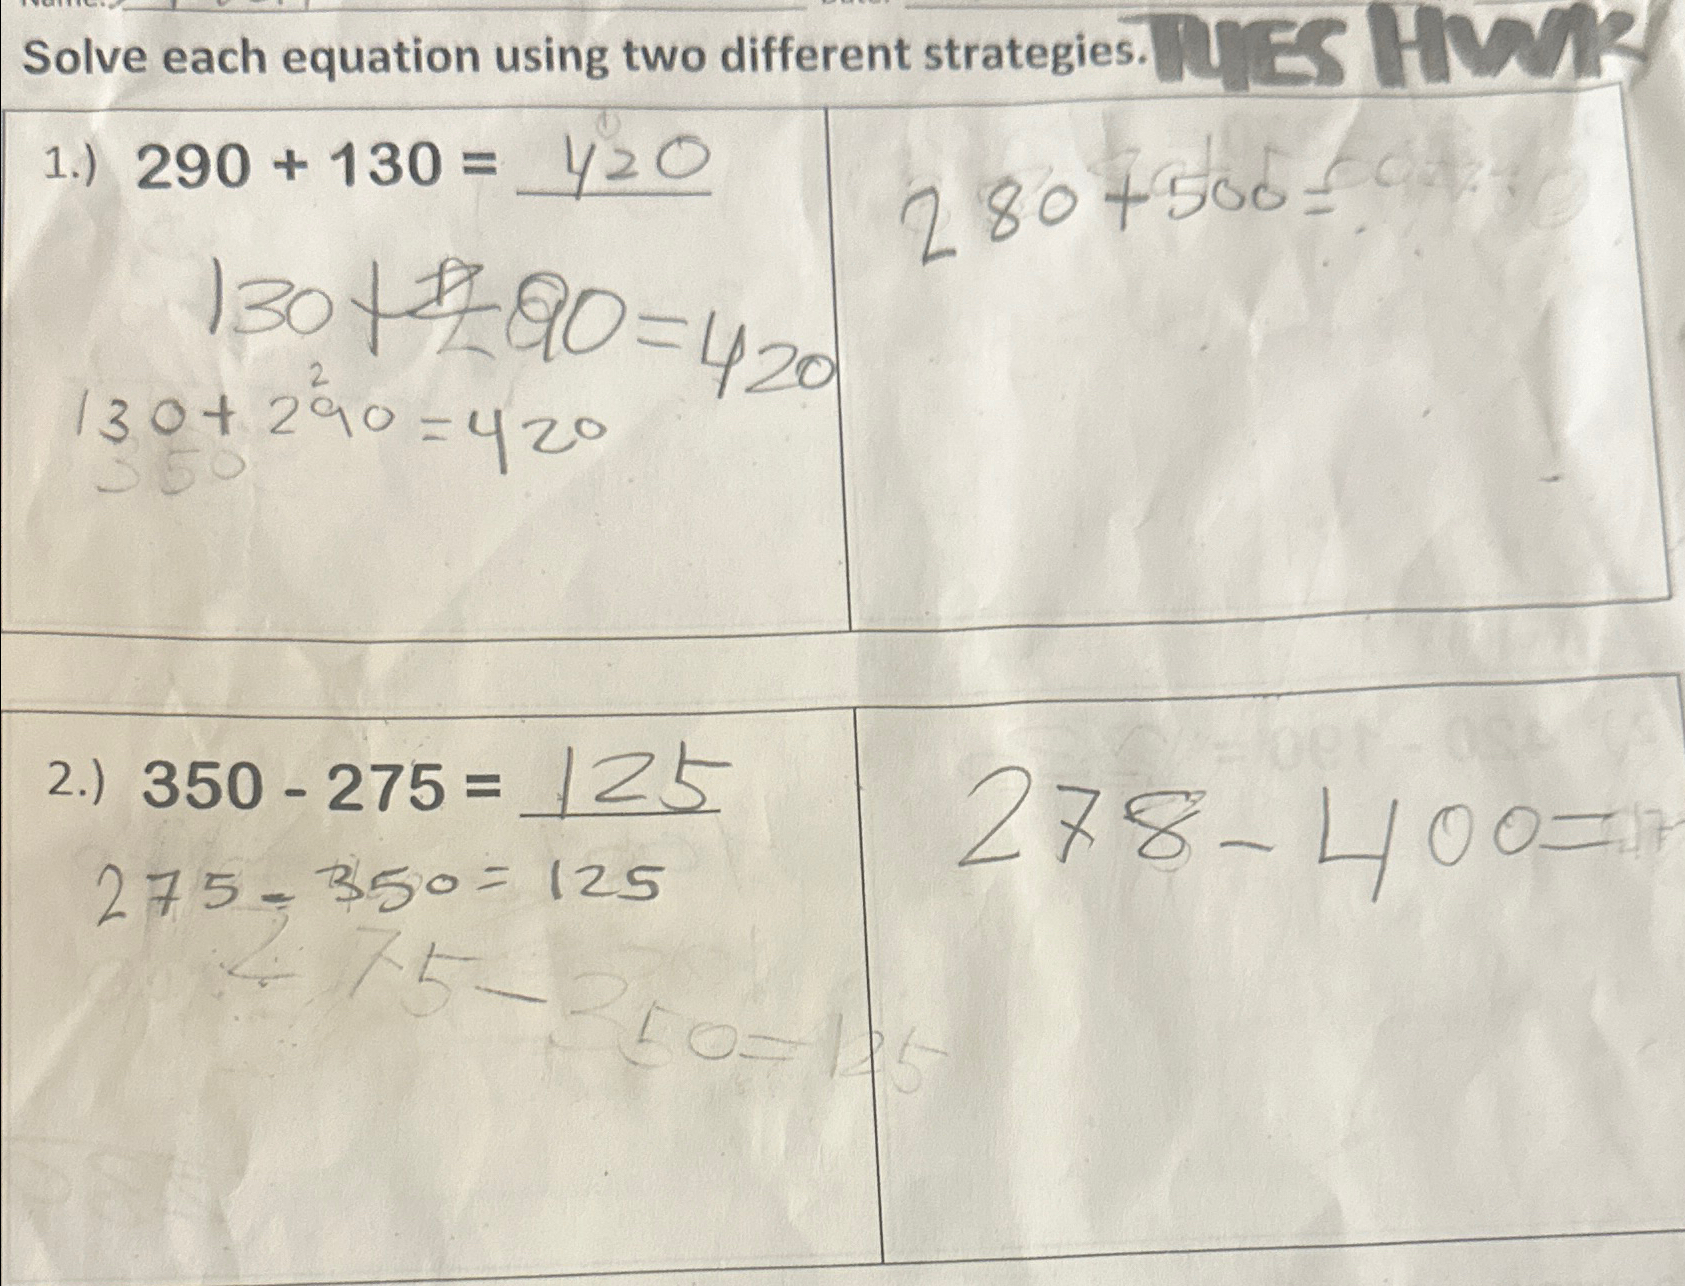 Solve each equation using two different strategies. TUES HWK
1.) 290 + 130 = 420
130 + 290 = 420
130 + 290 = 420
2
350
280 + 500 =
2.) 350 - 275 = 125
275 - 350 = 125
275 - 350 = 125
278 - 400 =